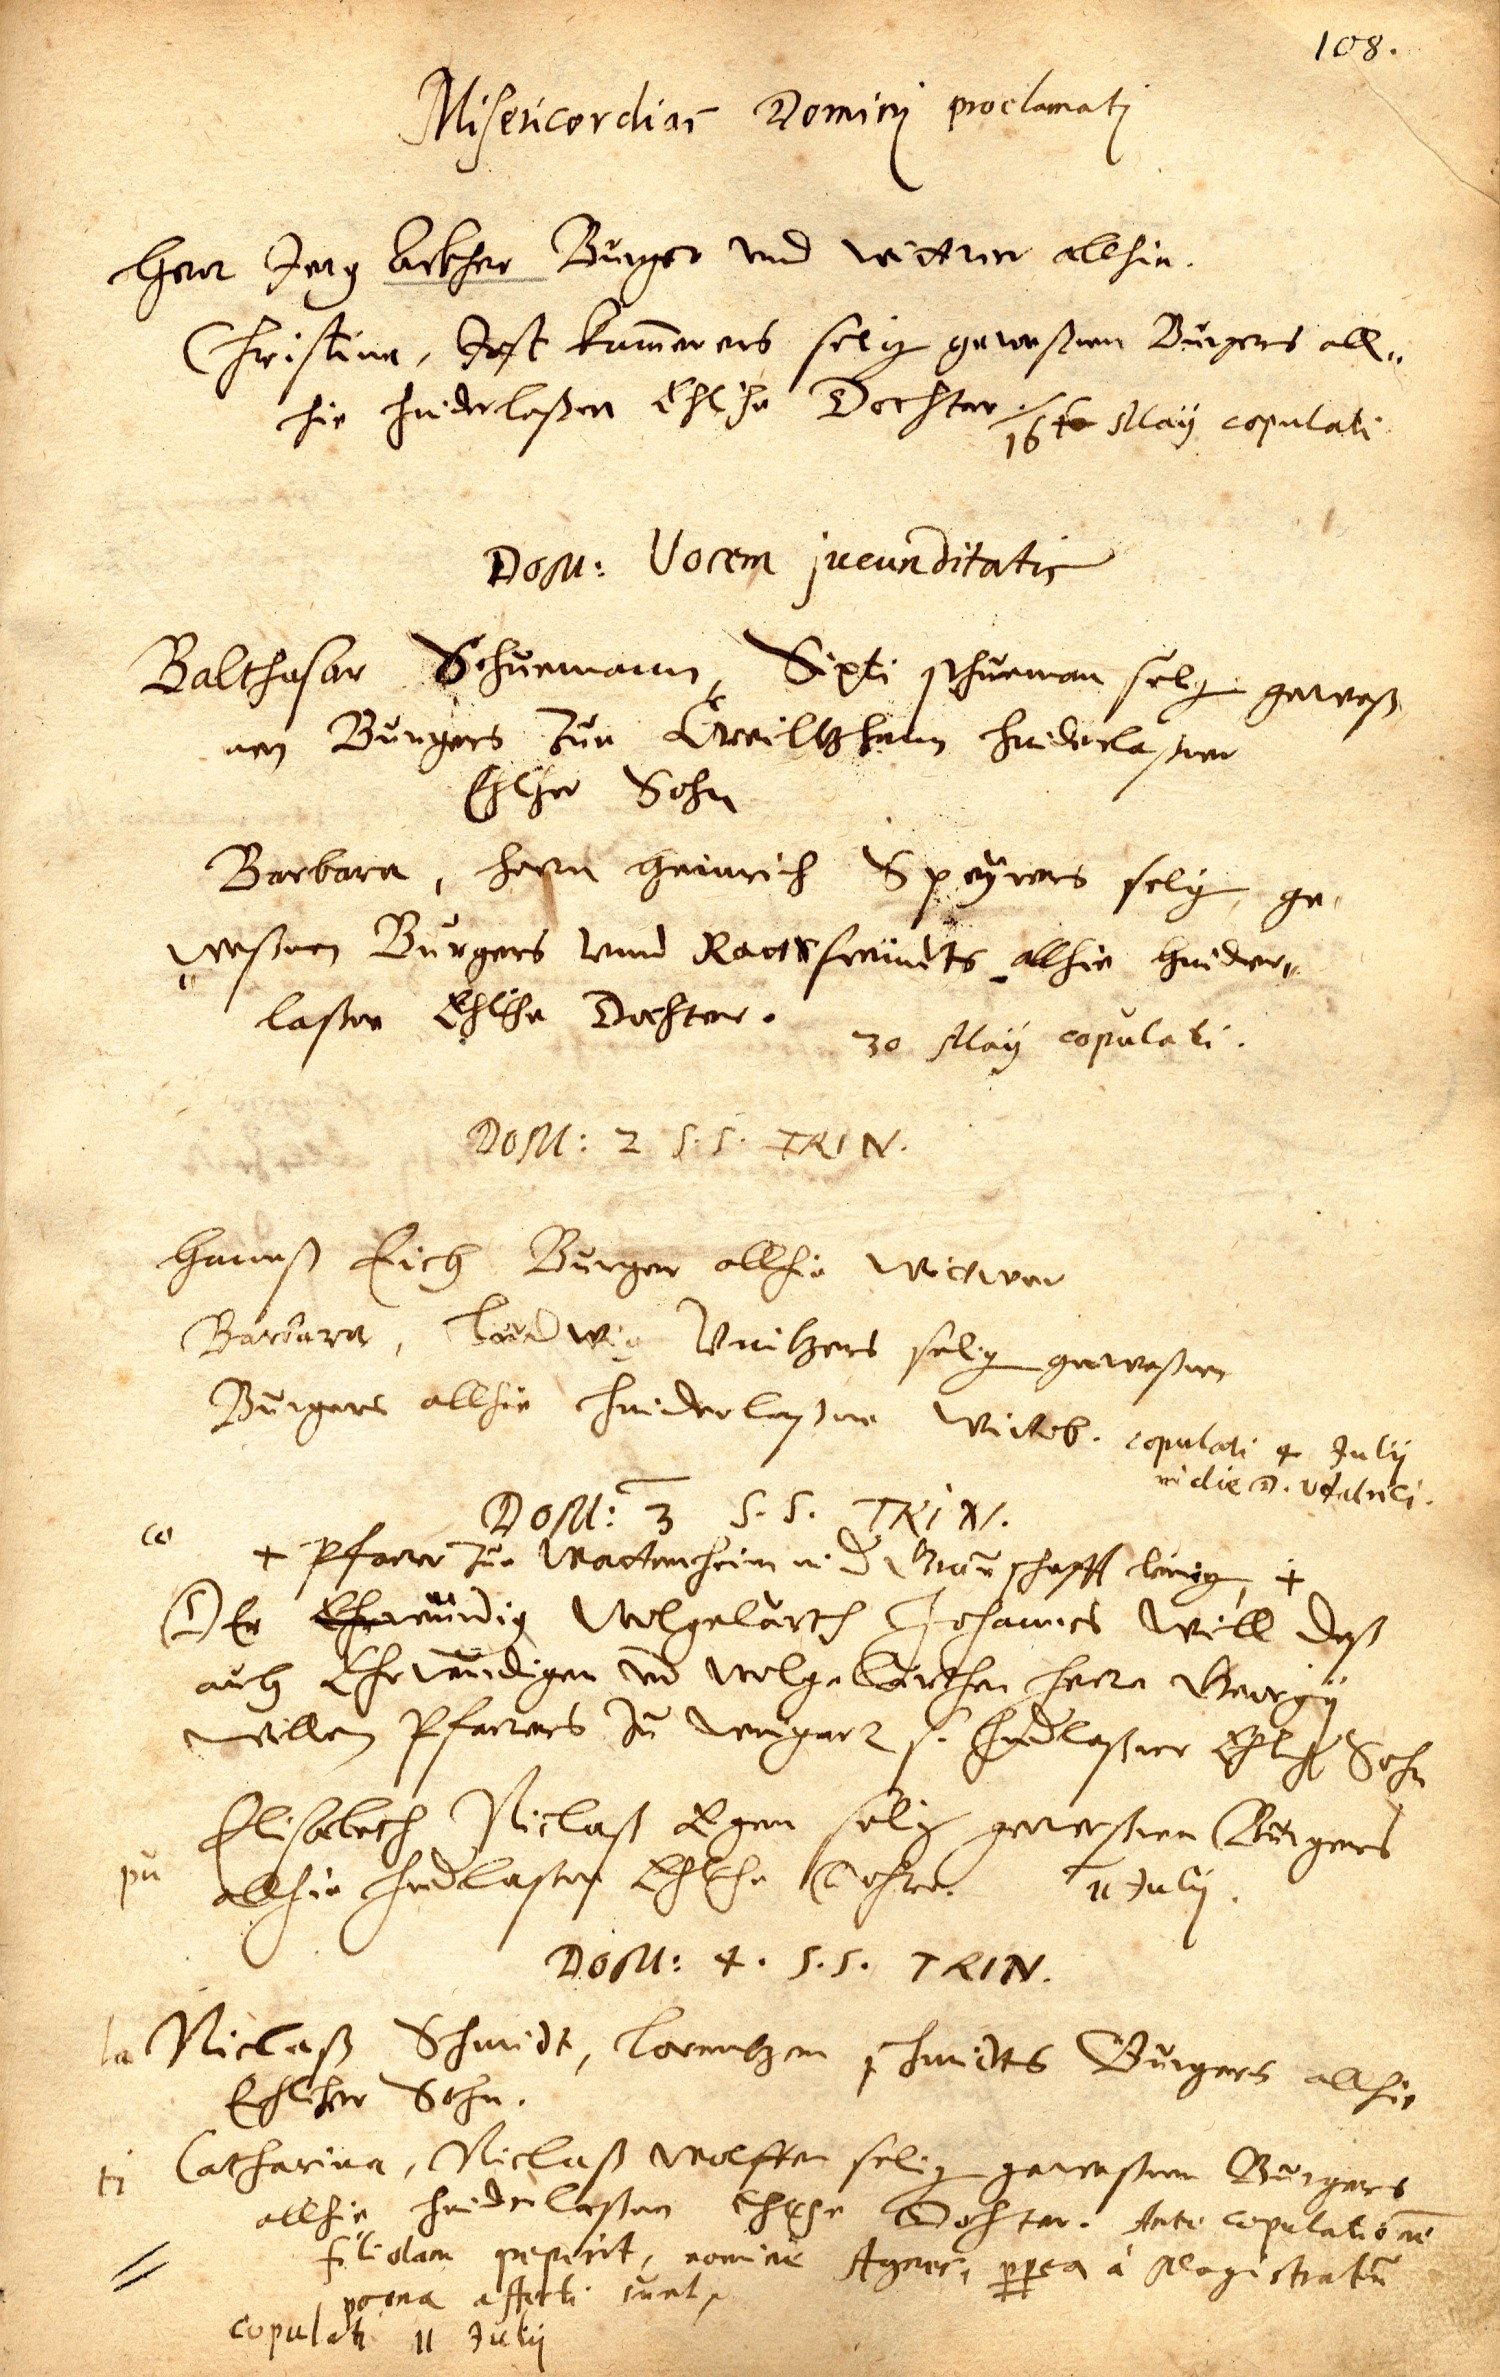 108.
Misericordias Dominj proclamatj
Herr Jerg Ackher Burger vnd wittwer allhie.
Christina, Jost Kammerers selig geweßnen Burgers all„
hie hinderlaßen Ehlche Dochter. 16 to Maij copulati
DoM: Vocem jucunditatis
Balthasar Schuemann, Sixti schueman selig geweß
nen Burgers zue hinderlaßner
Ehlicher Sohn
Barbara, herrn Heinrich Speyrers selig, ge„
weßnen Burgers vnnd Rathsfreündts allhie hinder„
laßne Ehliche Dochter. 30 Maij copulati.
DOM: 2 S. S. TRIN.
Hannß Eich Burger allhie Wittwer
Barbara, Ludwig selig geweßnen
Burgers allhie hinderlaßne Wittib. copulati 4 Julij
in die D. Udalrici.
DoM: 3 S. S. TRIN.
co
+ Pfarrer zue Wattenheim in d Graueschafft +
DEr Ehrwürdig Wolgelärth Johannes Will deß
auch Ehrwürdigen vnd wolgelärthen herrn Georgij
willen Pfarrers zu s. hinderlaßner Ehlich Sohn
Elisabeth Niclaß Egen selig geweßnen Burgers
pu allhie hinderlaßne Ehliche Dohter. 11 Julij.
DOM: 4. S. S. TRIN.
la Niclaß Schmidt, Lorentzen schmidts Burgers allhie
Ehlicher Sohn.
ti Catharina, Niclaß Wolffen selig geweßnen Burgers
allhie hinderlaßen Ehliche Dohter. Ante copulationē
filiolam peperit, nomine Agnes, à Magistratu
poena affecti sunt,
copulati 11 Julij